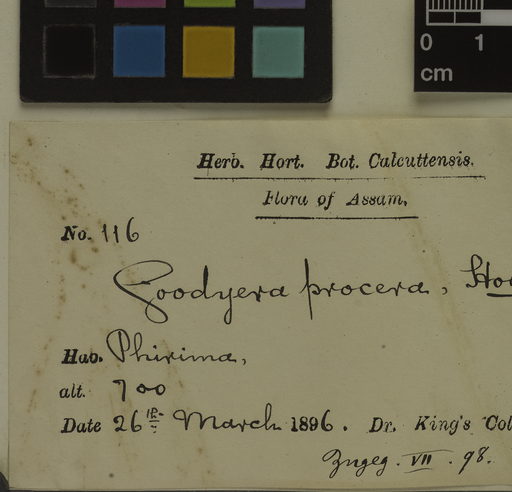 0 1
cm
Herb. Hort. Bot. Calcuttensis.
Flora of Assam.
No. 116
Goodyera procera, Hoo
Hab. Phirima,
alt. 700
Date 26th March 1896. Dr. King's Col
Zugeg. VII. 98.